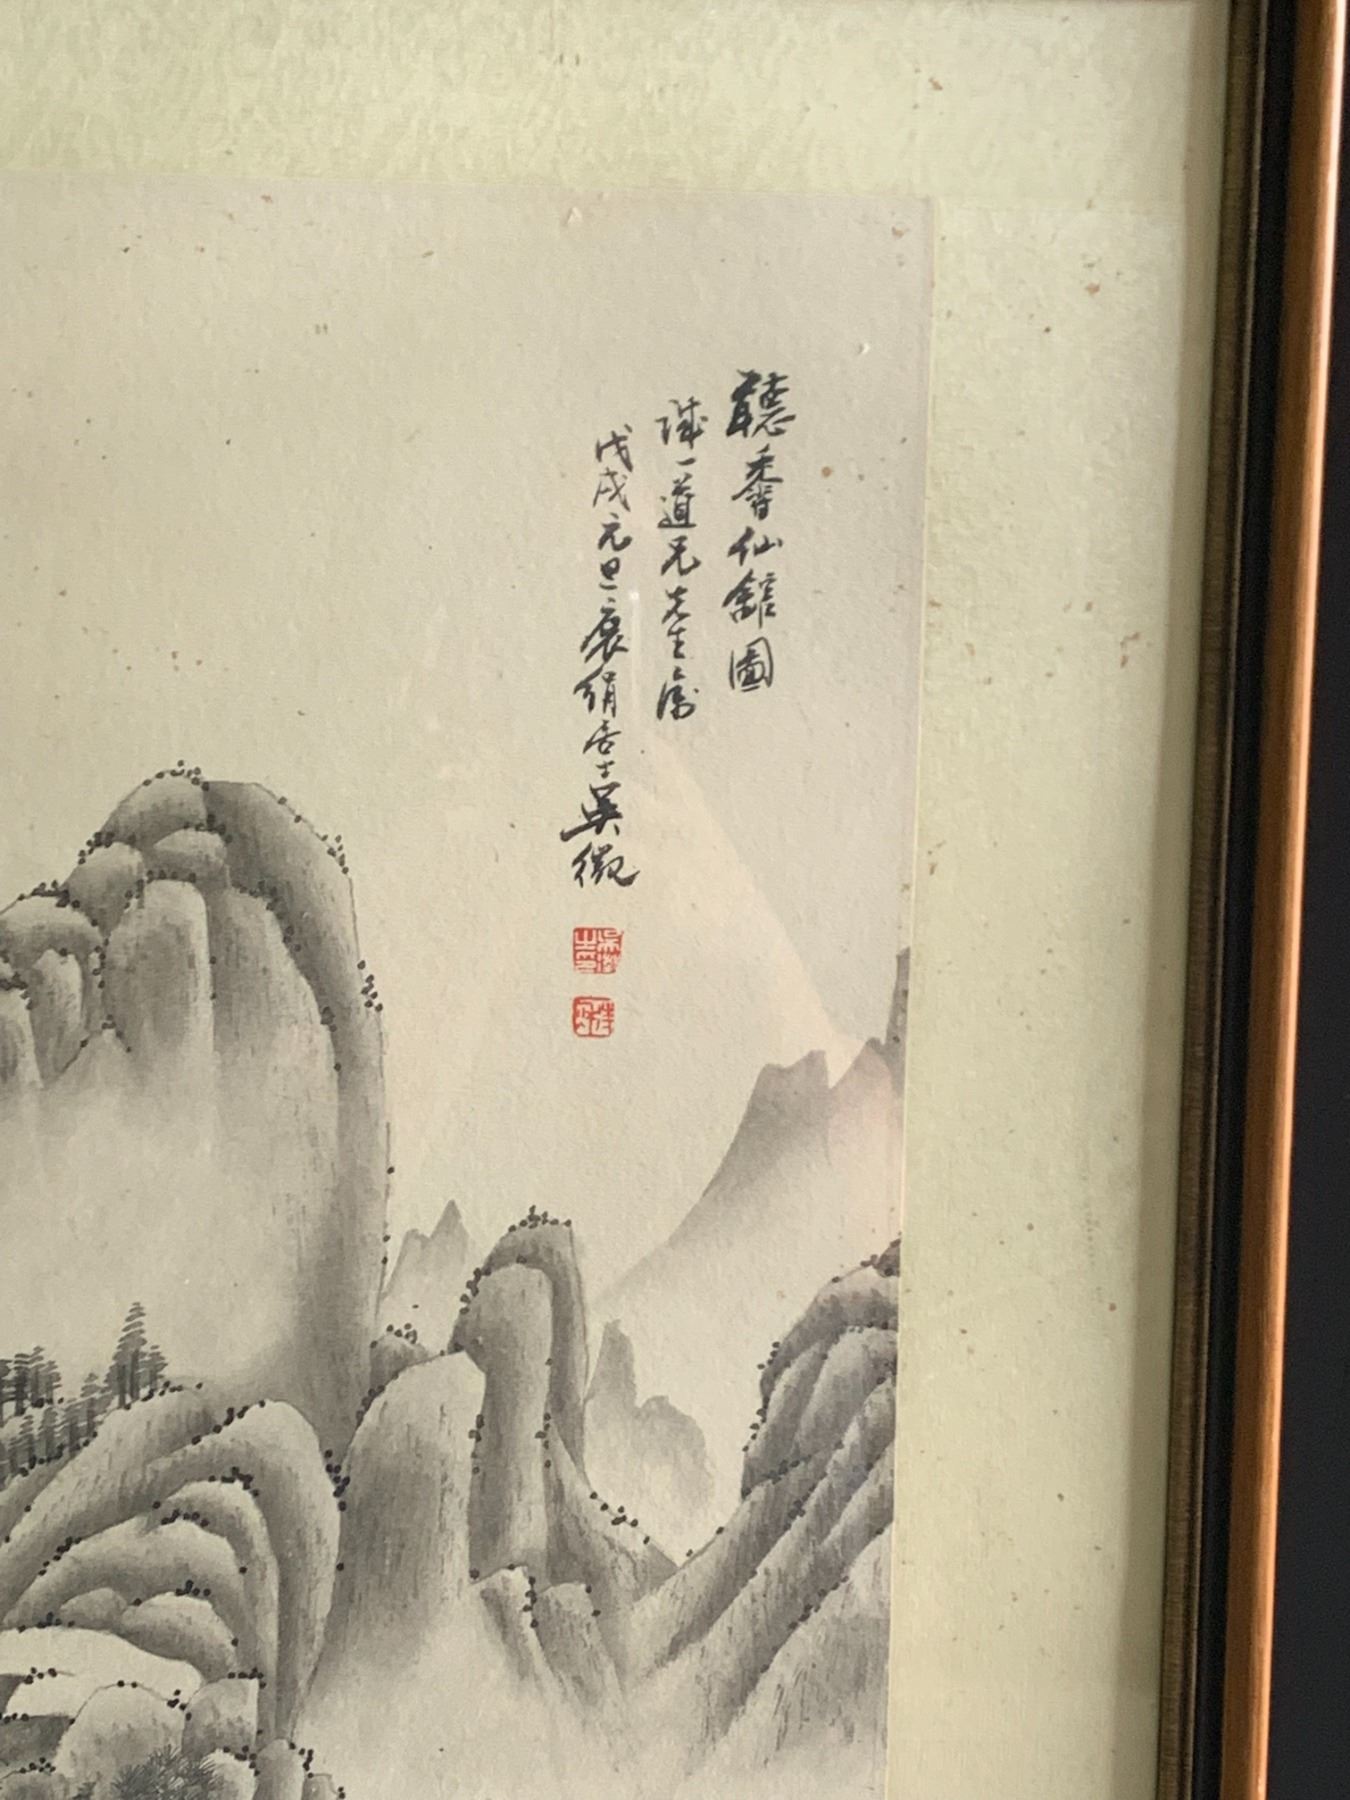 聽香仙館圖
誠一道兄先生屬
戊戌元旦展絹居士吳徵